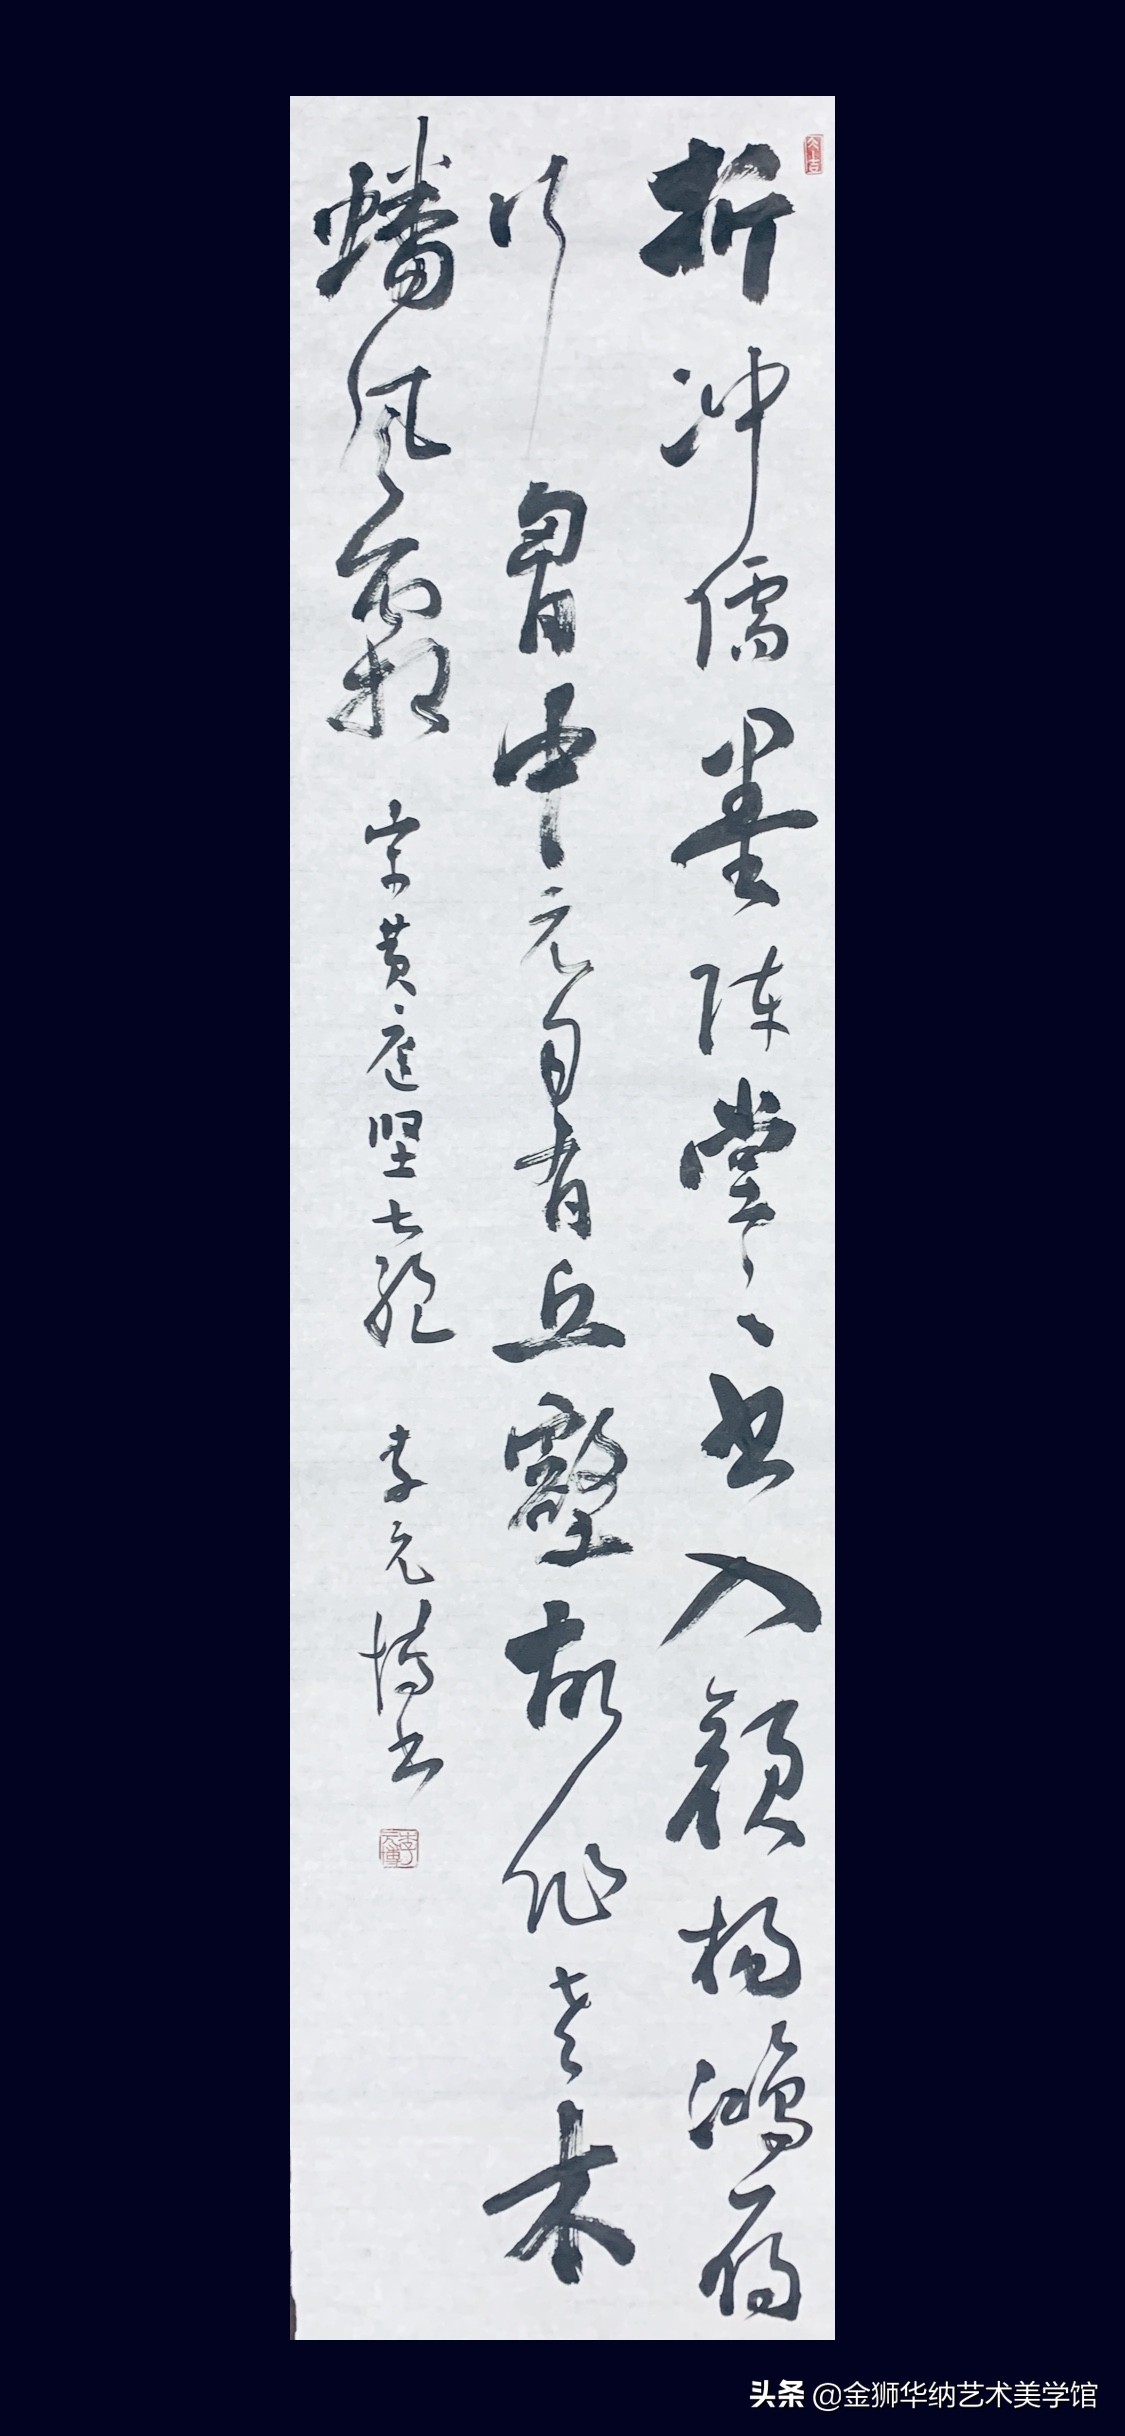 折冲儒墨陈堂堂书入颜杨鸿雁
行胷中元自有丘壑故作老木
蟠风霜
宋黄庭坚七绝 李元博书
李元博
头条 @金狮华纳艺术美学馆